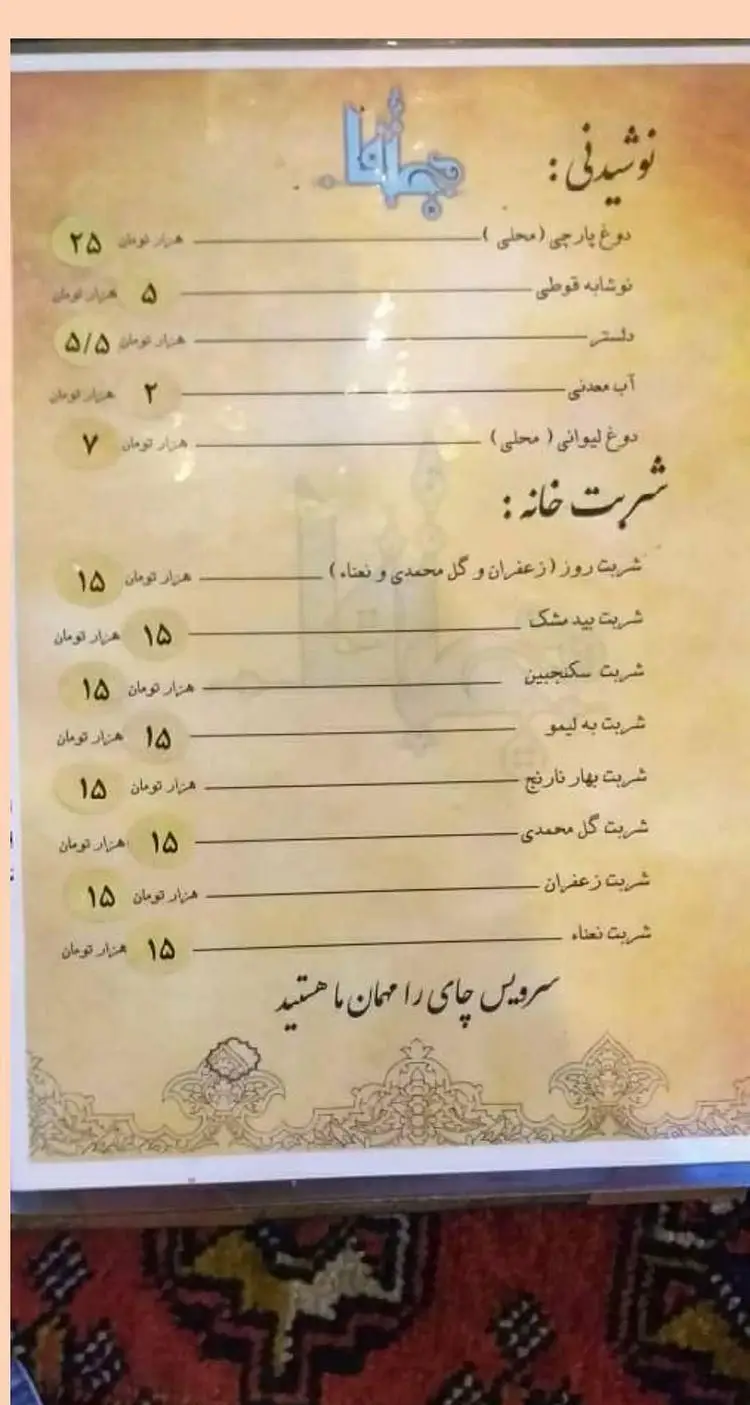 جهان‌نما
نوشیدنی :
دوغ پارچی (محلی ) ۲۵ هزار تومان
نوشابه قوطی ۵ هزار تومان
دلستر ۵/۵ هزار تومان
آب معدنی ۲ هزار تومان
دوغ لیوانی ( محلی ) ۷ هزار تومان
شربت خانه :
شربت روز (زعفران و گل محمدی و نعناء ) ۱۵ هزار تومان
شربت بید مشک ۱۵ هزار تومان
شربت سکنجبین ۱۵ هزار تومان
شربت به لیمو ۱۵ هزار تومان
شربت بهار نارنج ۱۵ هزار تومان
شربت گل محمدی ۱۵ هزار تومان
شربت زعفران ۱۵ هزار تومان
شربت نعناء ۱۵ هزار تومان
سرویس چای را مهمان ما هستید